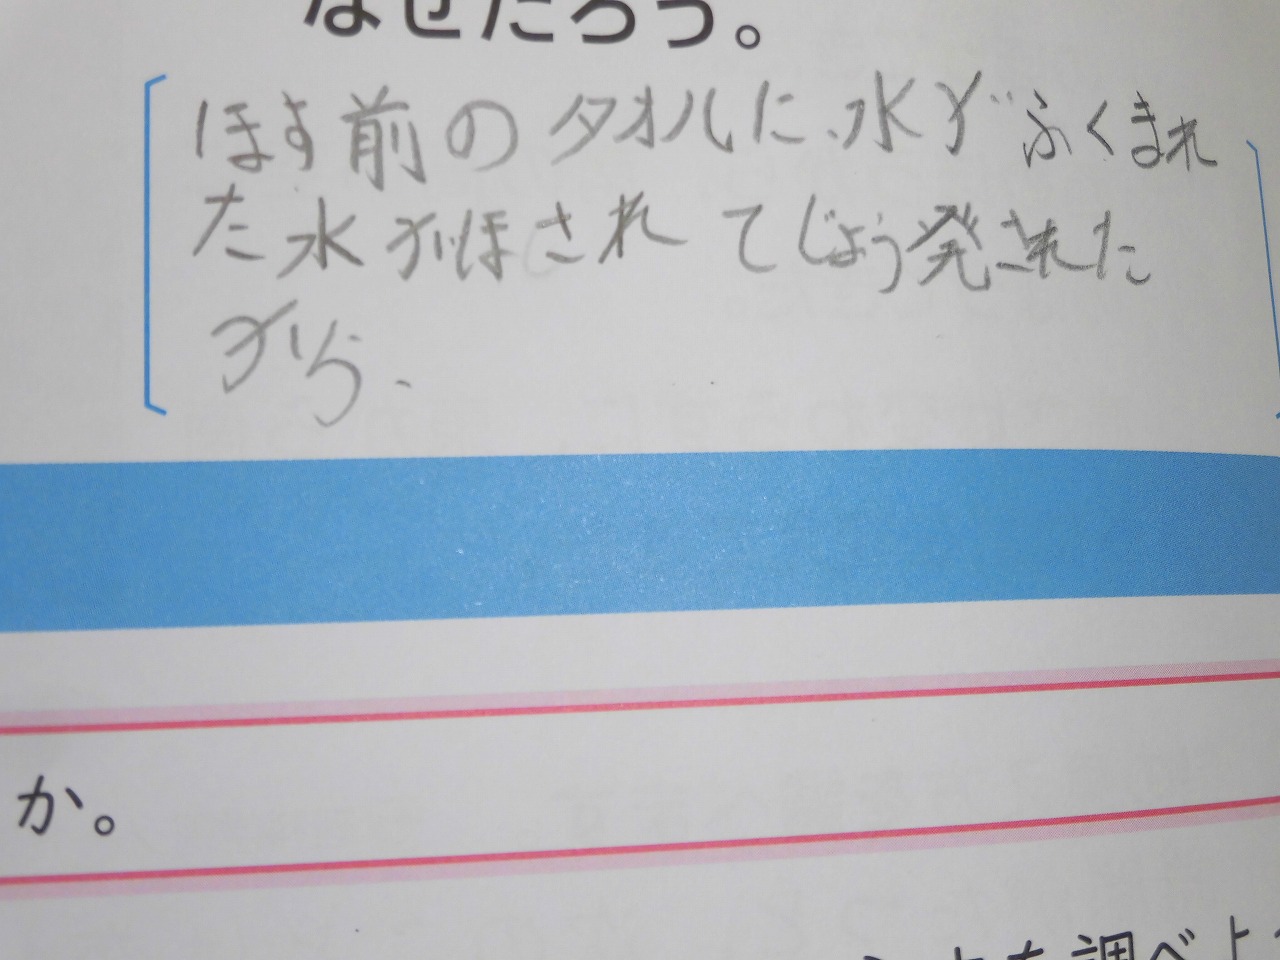 なぜだろう。
ほす前のタオルに、水がふくまれ
た水がほされてじょう発された
から.
か。
を調べよ